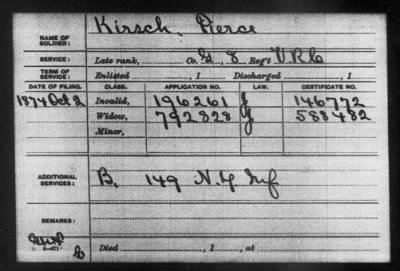 NAME OF SOLDIER: Kirsch, Pierce
SERVICE: Late rank, Co. G, 8 Reg't V.R.C.
TERM OF SERVICE: Enlisted , 1 Discharged , 1
DATE OF FILING. CLASS. APPLICATION NO. LAW. CERTIFICATE NO.
1874 Oct 2 Invalid, 196261 J 146772
Widow, 792828 G 588482
Minor,
ADDITIONAL SERVICES: B. 149 N.Y. Inf
REMARKS:
Died , 1 , at